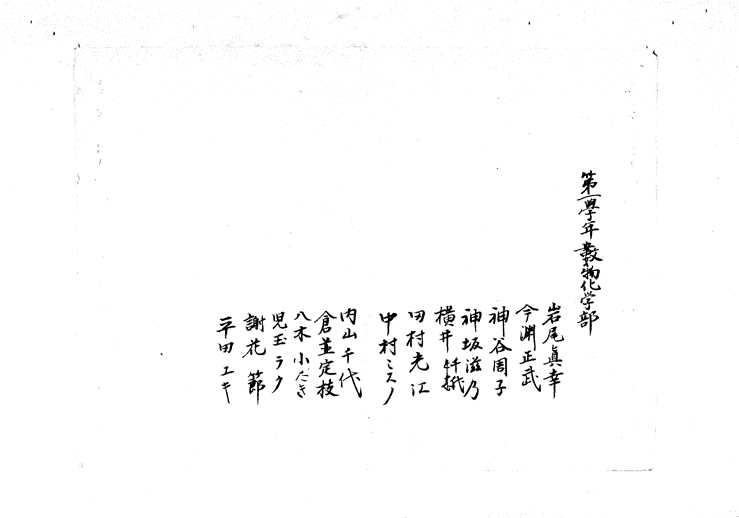 第一學年數物化学部
岩尾眞幸
今淵正武
神谷周子
神坂滋乃
横井
田村光江
中村ミスノ
内山千代
倉並定枝
八木小たき
児玉ラク
謝花節
平田ユキ